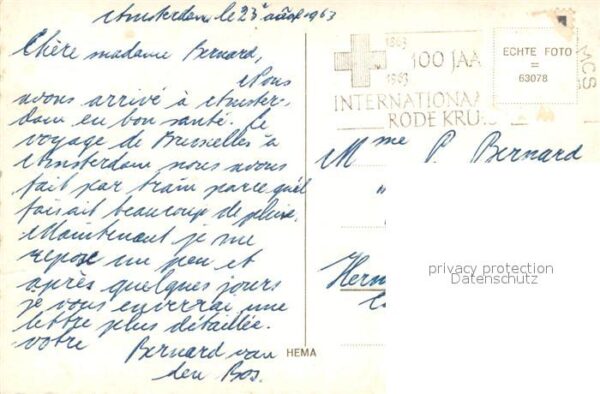 Amsterdam le 23 août 1963
Chère madame Bernard,
Nous
avons arrivé à Amster-
dam en bon santé. Le
voyage de Brusselles à
Amsterdam nous avons
fait par train parce qu'il
faisait beaucoup de pluie.
Maintenant je me
repose un peu et
après quelques jours
je vous enverrai une
lettre plus détaillée.
votre Bernard van
den Bos.
HEMA
1863
1963
100 JAA
INTERNATIONAA
RODE KRU
ECHTE FOTO
=
63078
Mme P. Bernard
Herm
privacy protection
Datenschutz